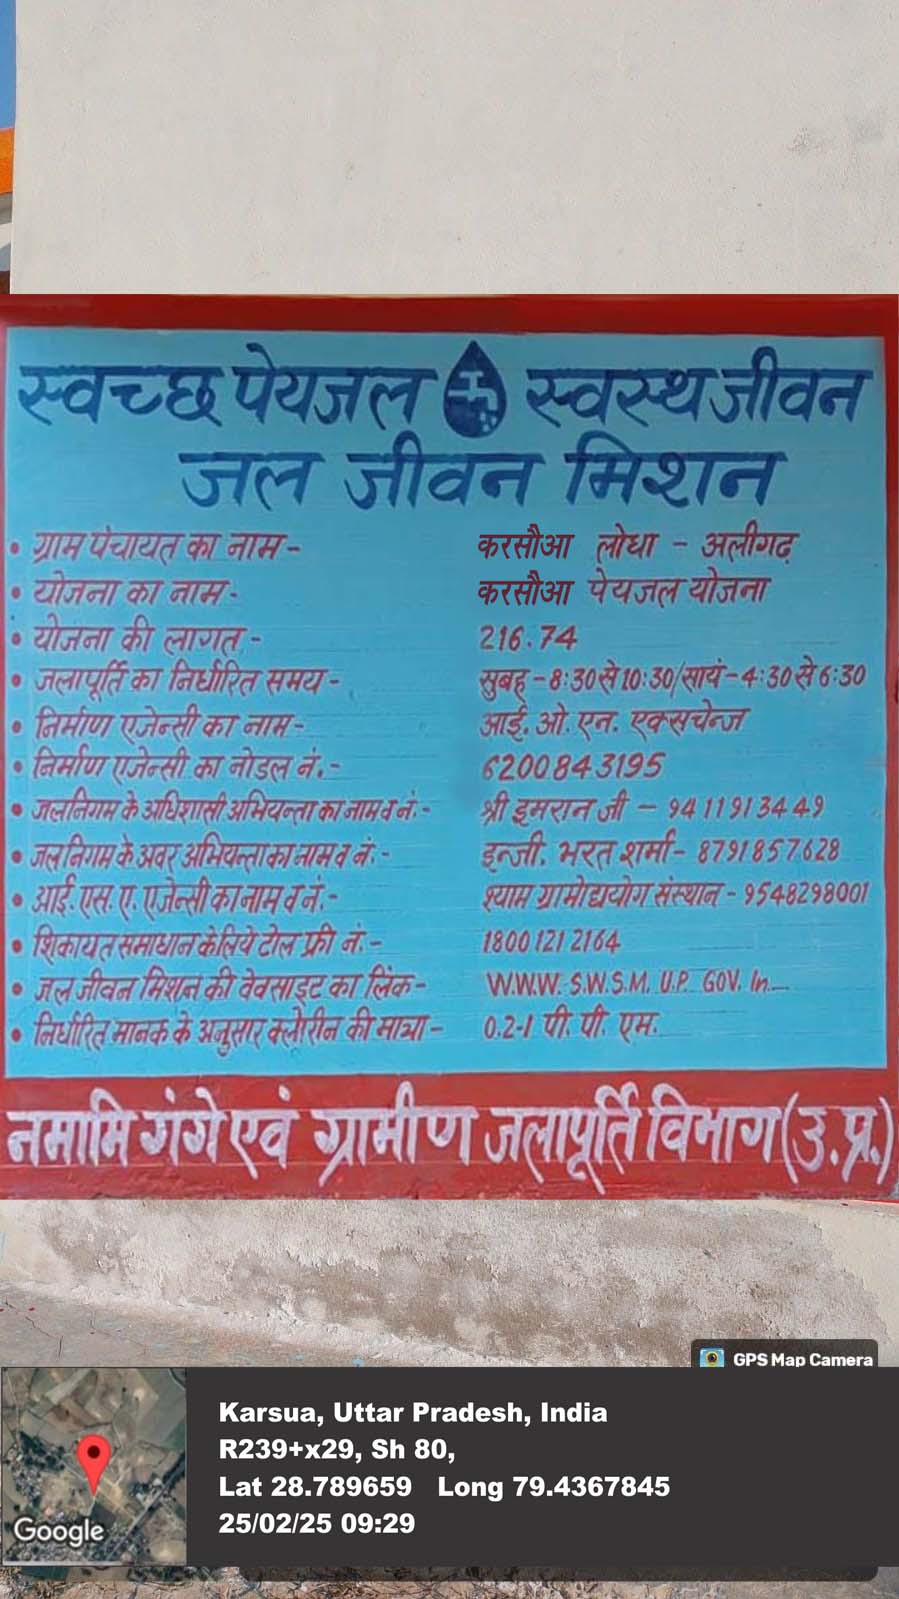 स्वच्छ पेयजल स्वस्थ जीवन
जल जीवन मिशन
• ग्राम पंचायत का नाम - करसौआ लोधा - अलीगढ़
• योजना का नाम - करसौआ पेयजल योजना
• योजना की लागत - 216.74
• जलापूर्ति का निर्धारित समय - सुबह - 8:30 से 10:30/सायं - 4:30 से 6:30
• निर्माण एजेन्सी का नाम - आई. ओ. एन. एक्सचेन्ज
• निर्माण एजेन्सी का नोडल नं. - 6200843195
• जलनिगम के अधिशासी अभियन्ता का नाम व नं. - श्री इमरान जी - 9411913449
• जलनिगम के अवर अभियन्ता का नाम व नं. - इन्जी. भरत शर्मा - 8791857628
• आई. एस. ए. एजेन्सी का नाम व नं. - श्याम ग्रामोद्ययोग संस्थान - 9548298001
• शिकायत समाधान के लिये टोल फ्री नं. - 1800 121 2164
• जल जीवन मिशन की वेवसाइट का लिंक - W.W.W. S.W.S.M. U.P. GOV. In
• निर्धारित मानक के अनुसार क्लोरीन की मात्रा - 0.2-1 पी. पी. एम.
नमामि गंगे एवं ग्रामीण जलापूर्ति विभाग (उ.प्र.)
GPS Map Camera
Karsua, Uttar Pradesh, India
R239+x29, Sh 80,
Lat 28.789659 Long 79.4367845
25/02/25 09:29
Google